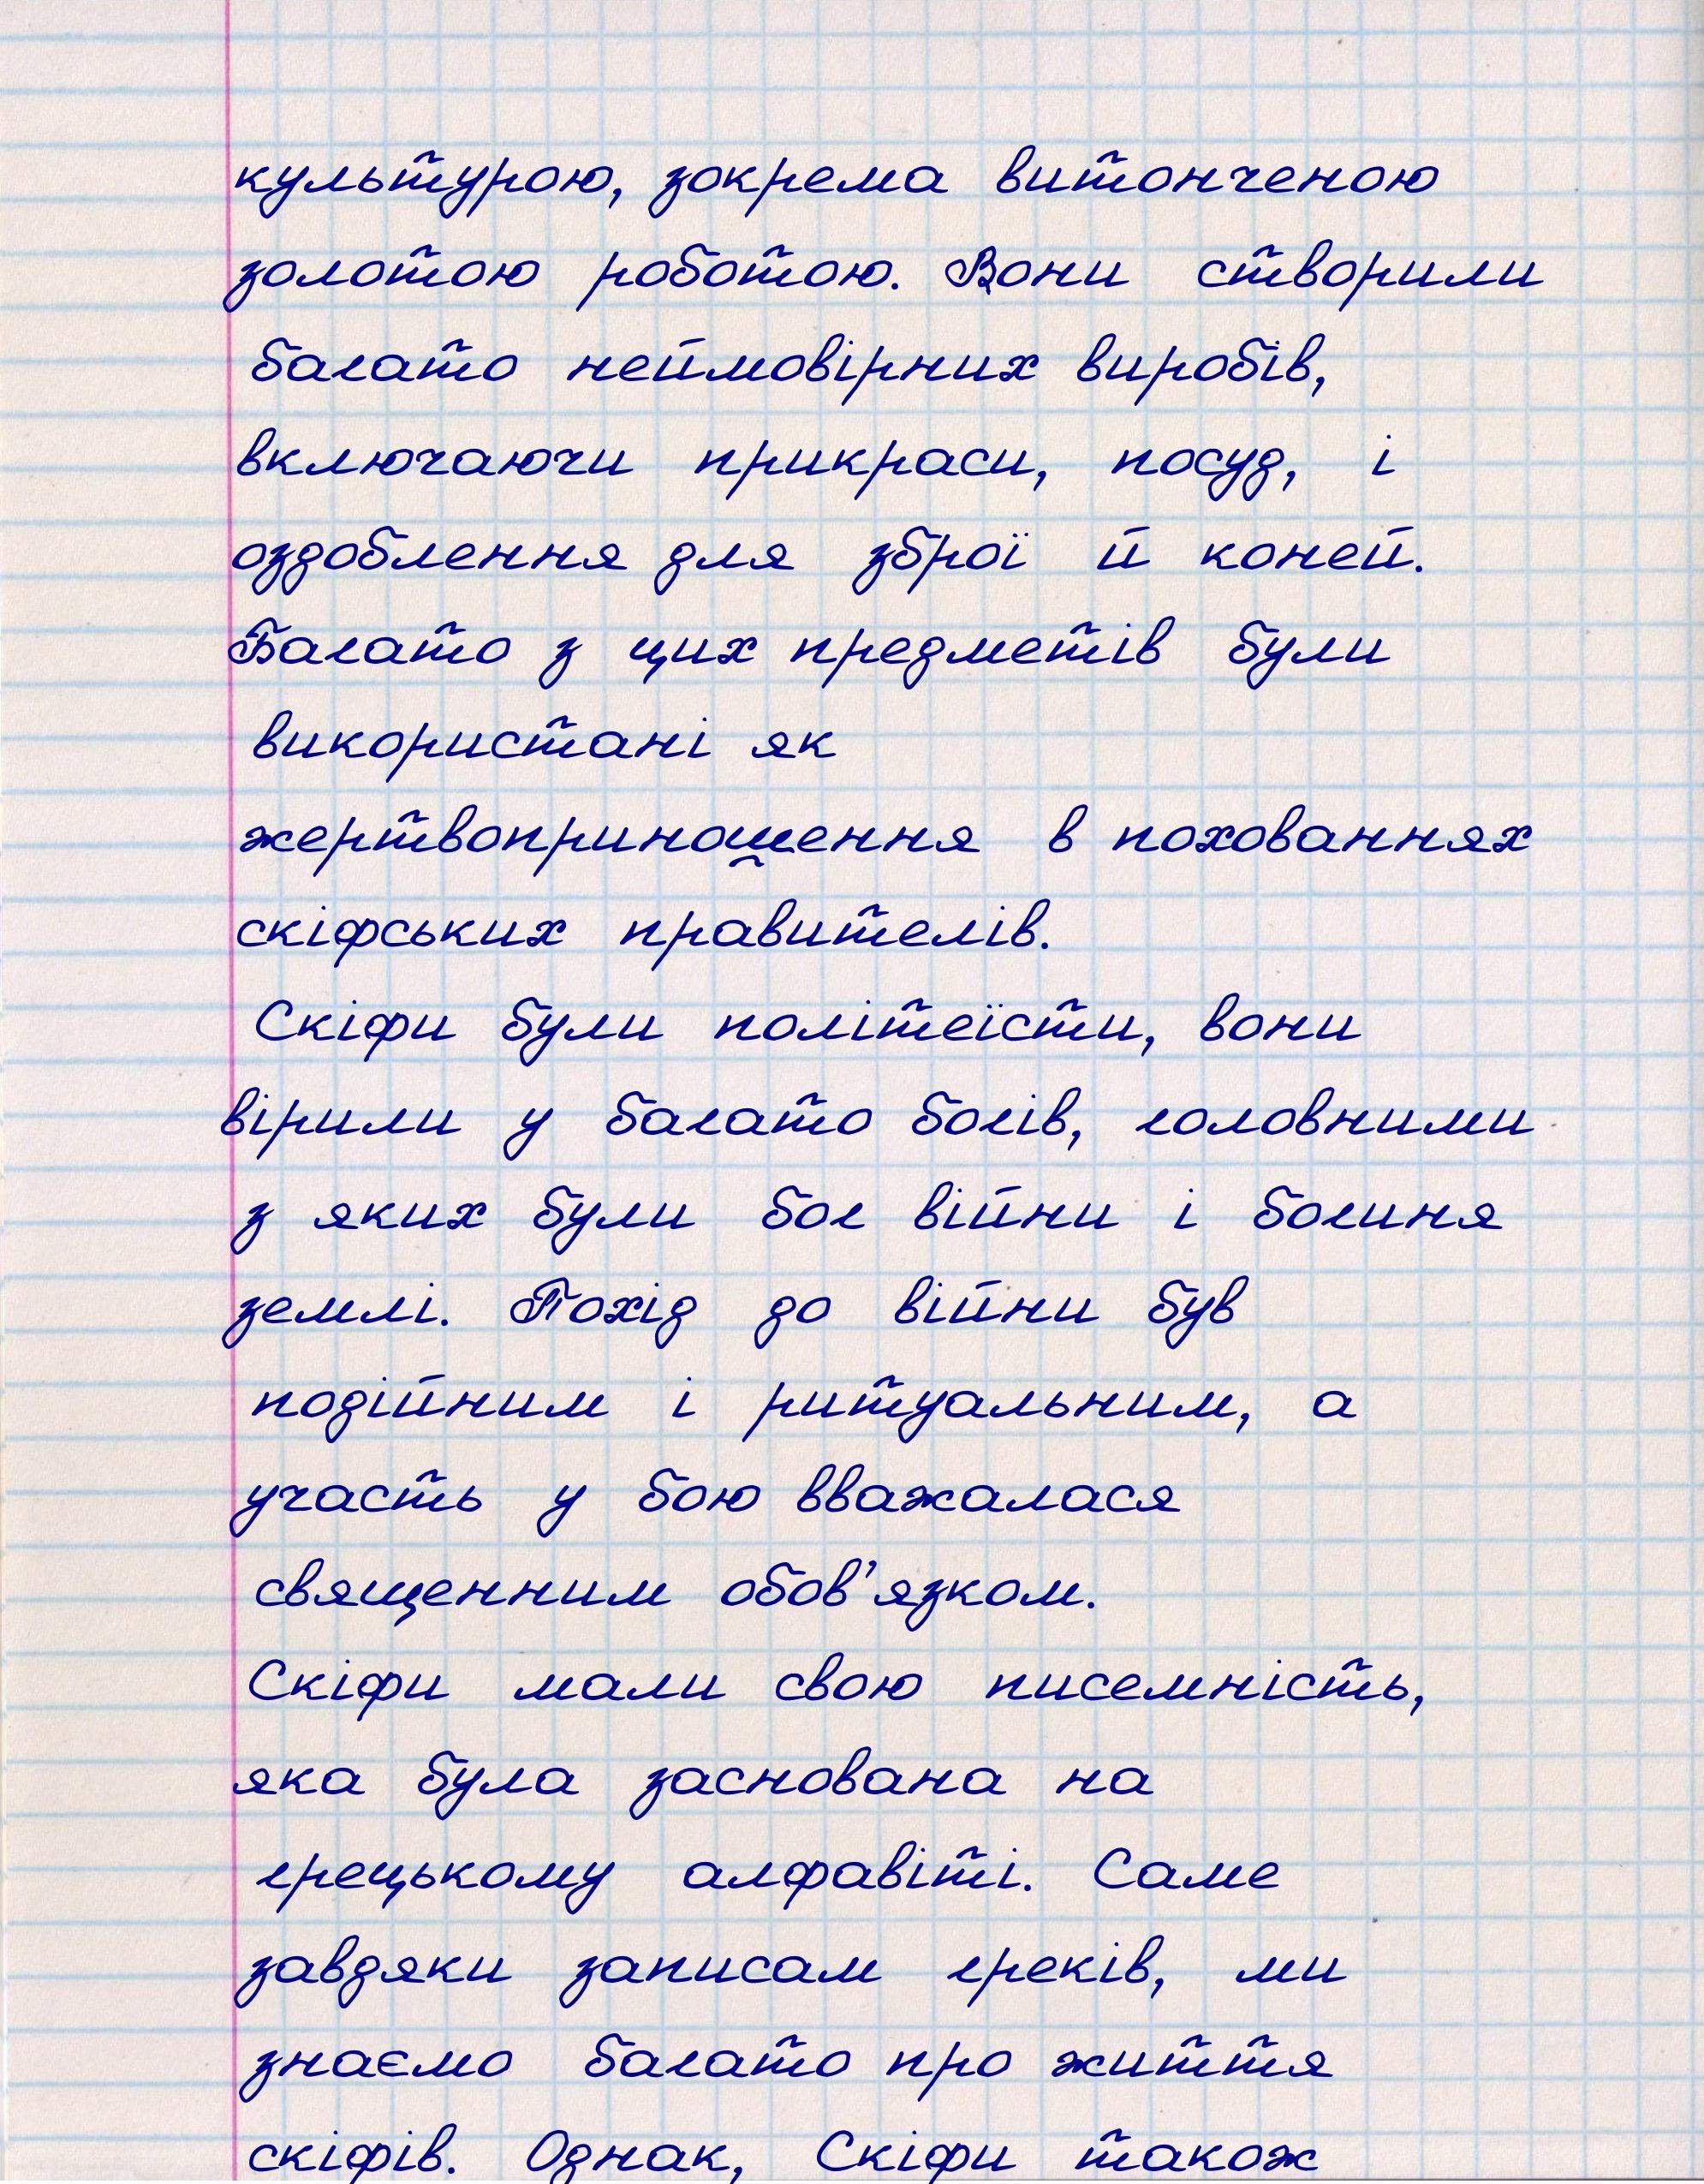 культурою, зокрема витонченою
золотою роботою. Вони створили
багато неймовірних виробів,
включаючи прикраси, посуд, і
оздоблення для зброї й коней.
Багато з цих предметів були
використані як
жертвоприношення в похованнях
скіфських правителів.
Скіфи були політеїсти, вони
вірили у багато богів, головними
з яких були бог війни і богиня
землі. Похід до війни був
подійним і ритуальним, а
участь у бою вважалася
священним обов'язком.
Скіфи мали свою писемність,
яка була заснована на
грецькому алфавіті. Саме
завдяки записам греків, ми
знаємо багато про життя
скіфів. Однак, Скіфи також